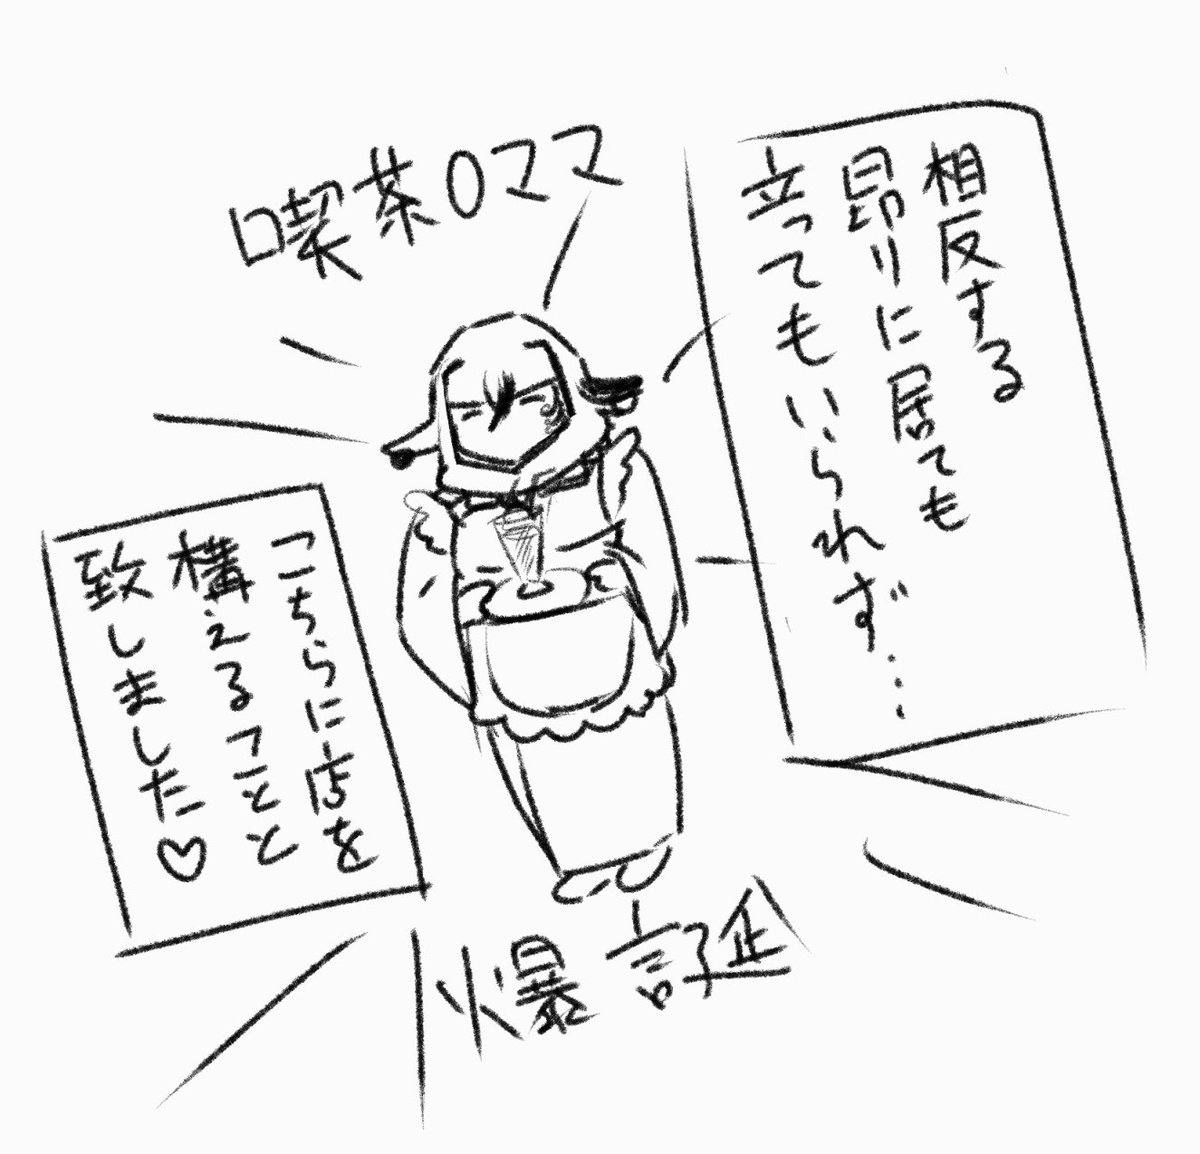 喫茶ロママ
相反する
昂りに居ても
立ってもいられず…
こちらに店を
構えることと
致しました♡
爆誕